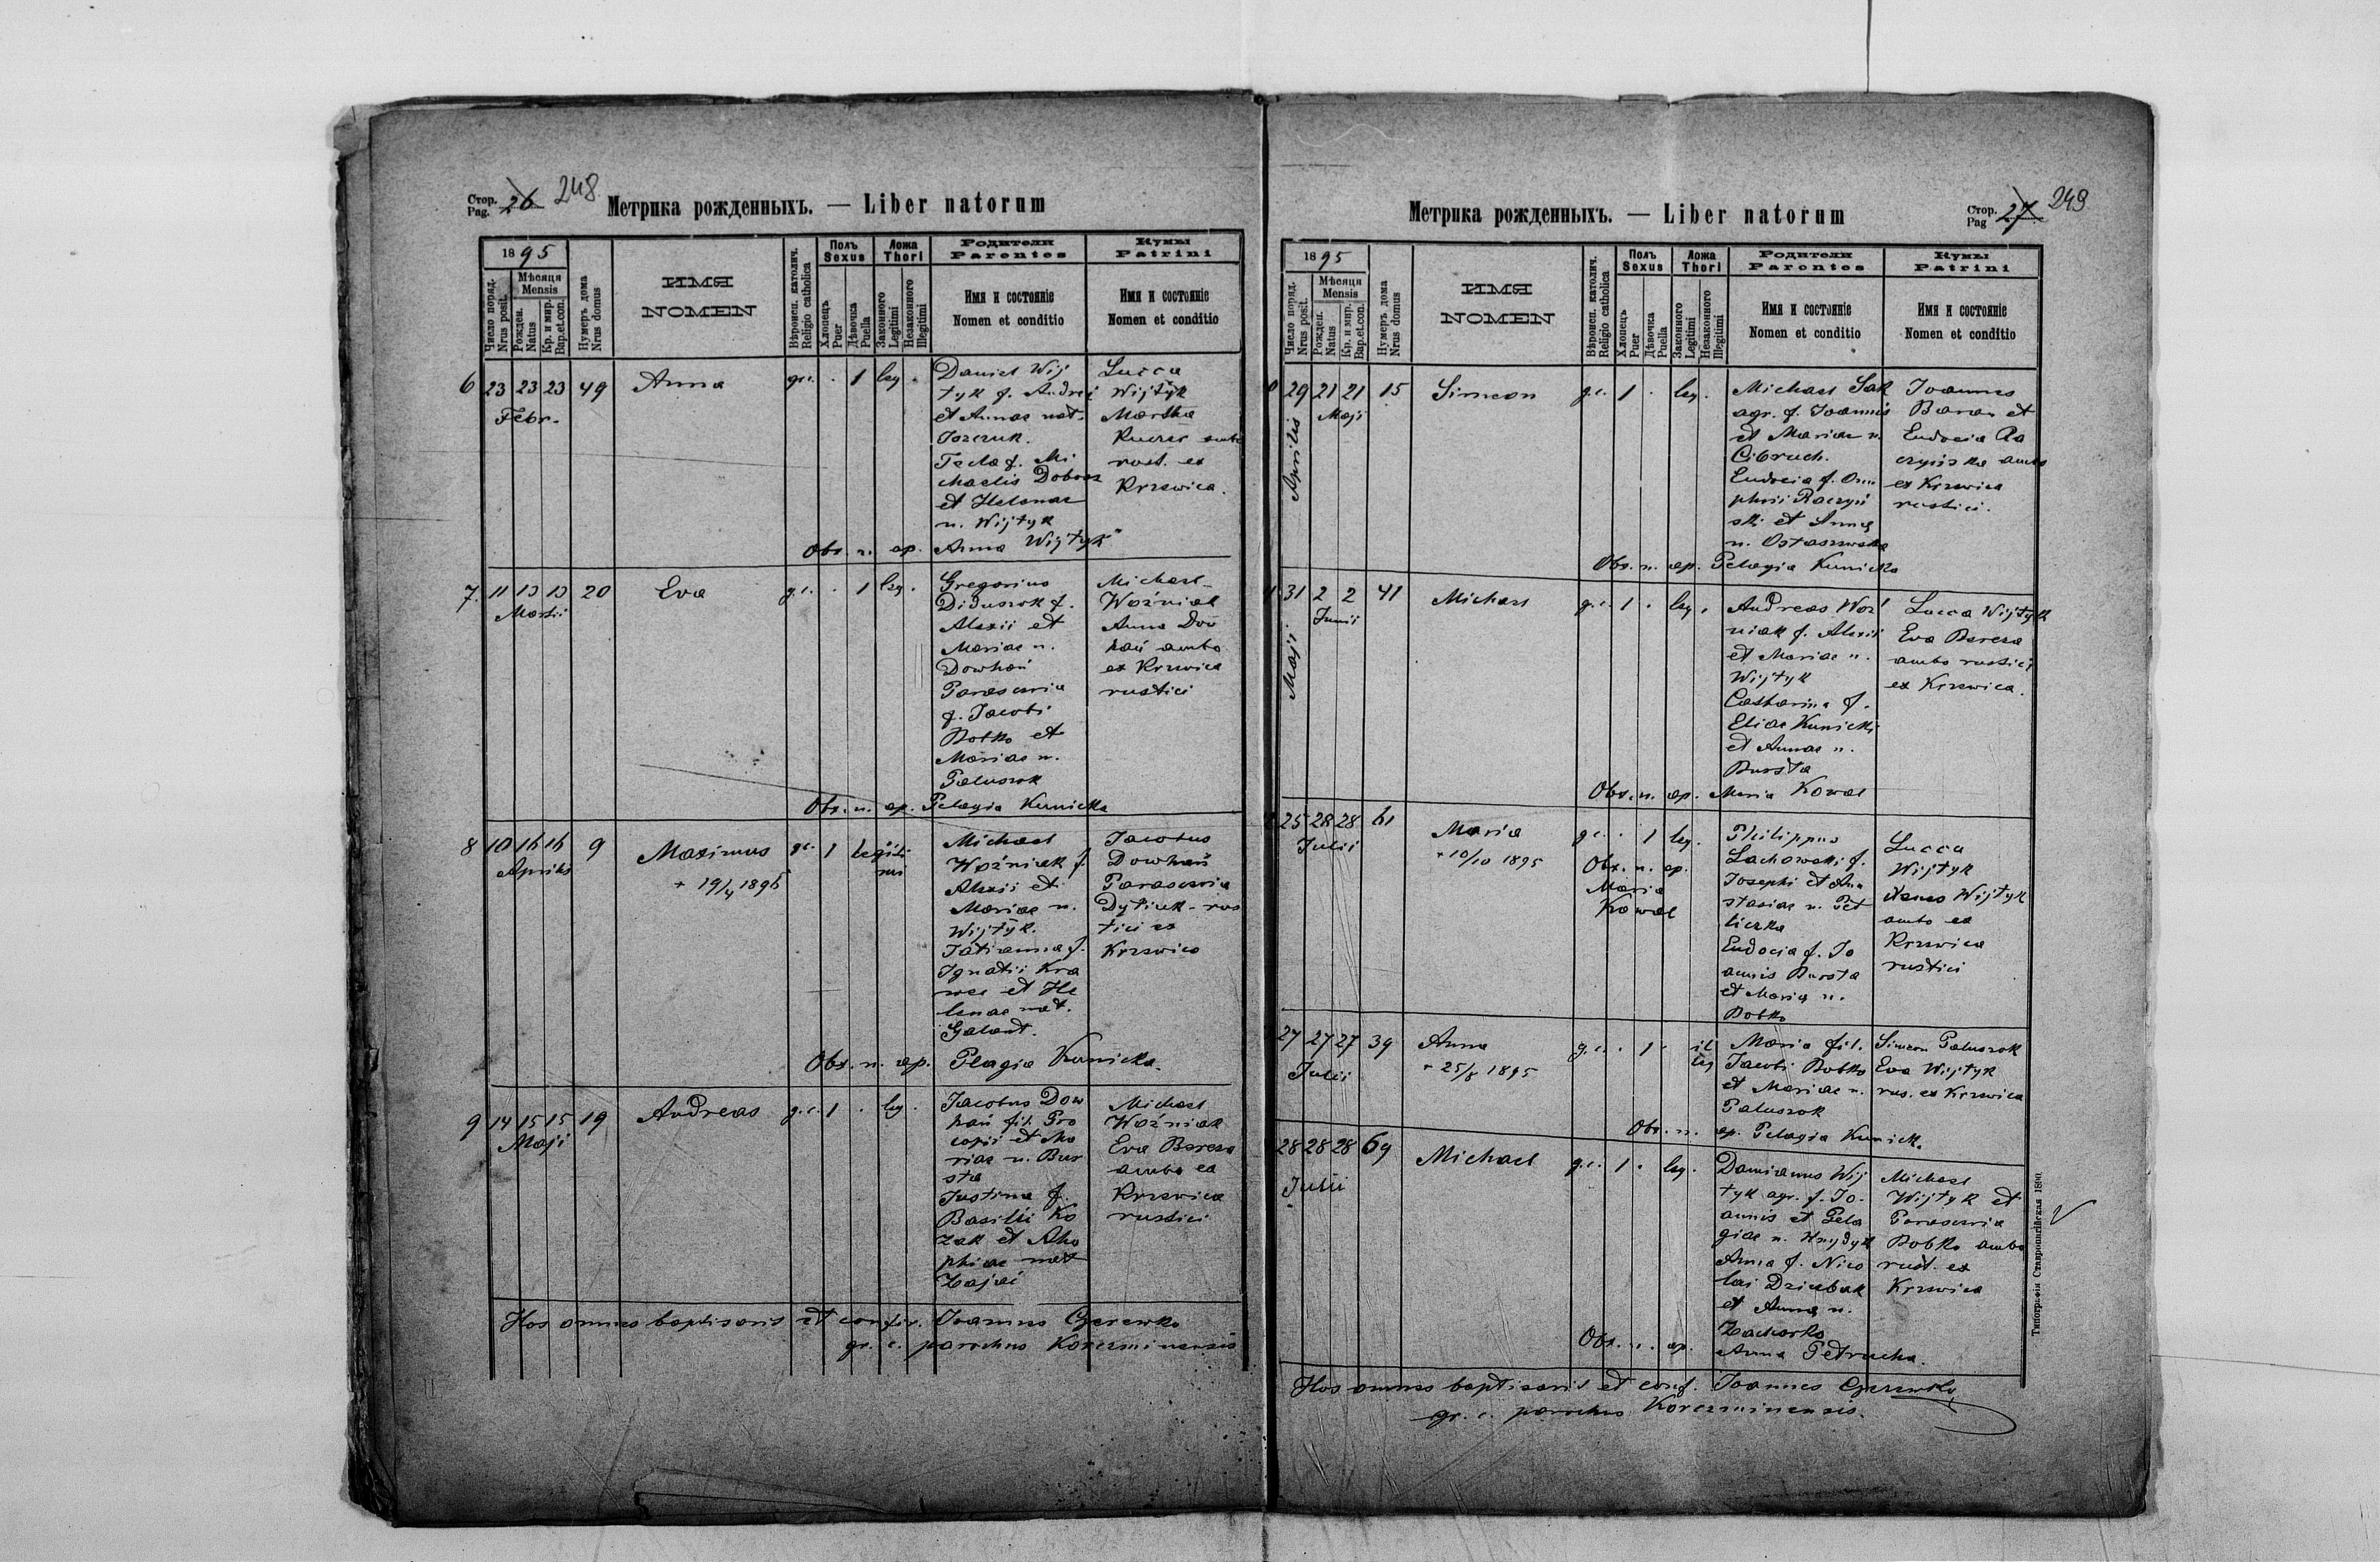 Стор. 26 248
Pag.
Метрика рожденныхъ. — Liber natorum
1895
Мѣсяця
Mensis
Число поряд.
Nrus posit.
Рожден.
Natus
Кр. и мир.
Bap.et.con.
Нумеръ дома
Nrus domus
ИМЯ
NOMEN
Вѣроисп. католич.
Religio catholica
Полъ
Sexus
Хлопецъ
Puer
Дѣвочка
Puella
Ложа
Thori
Законного
Legitimi
Незаконного
Illegitimi
Родители
Parentes
Имя и состояніе
Nomen et conditio
Кумы
Patrini
Имя и состояніе
Nomen et conditio
6 23 23 23 49 Anna g.c. . 1 leg.
Febr.
Daniel Wij
tyk f. Andrei
et Annae nat.
Tecla f. Mi
chaelis
et Helenae
n. Wijtyk
Lucca
Wijtyk
Martha
rust. ex
Krzewica.
Obs. n. ap. Anna Wijtyk
7. 11 13 13 20 Eva g.c. . 1 leg.
Martii
Gregorius
Diduszok f.
Alexii et
Mariae n.
Dowhań
Parascevia
f. Jacobi
Bobko et
Mariae n.
Paluszok
Michael
Woźniak
Anna Dow
hań ambo
ex Krzewica
rustici
Obs. n. ap. Pelagia Kunicka
8 10 16 16 9 Maximus g.c. 1 legiti
mi
Aprilis
+ 19/4 1895
Michael
Woźniak f.
Alexii et
Mariae n.
Wijtyk.
Tatianna f.
Ignatii Kra
wec et He
lenae nat.
Galant.
Jacobus
Dowhań
Parascevia
Dytiuk - rus
tici ex
Krzewica
Obs. n. ap. Plagia Kunicka.
9 14 15 15 19 Andreas g.c. 1 . leg.
Maji
Jacobus Dow
hań fil. Pro
copii et Ma
riae n. Bur
sta
Justina f.
Basilii Ko
zak et
phiae nat
Zajać
Michael
Woźniak
Eva Bereza
ambo ex
Krzewica
rustici
Hos omnes baptisavit et confir. Joannes Czerewko
gr. c. parochus Korczminensis
Метрика рожденныхъ. — Liber natorum
Стор. 27 249
Pag
1895
Мѣсяця
Mensis
Число поряд.
Nrus posit.
Рожден.
Natus
Кр. и мир.
Bap.et.con.
Нумеръ дома
Nrus domus
ИМЯ
NOMEN
Вѣроисп. католич.
Religio catholica
Полъ
Sexus
Хлопецъ
Puer
Дѣвочка
Puella
Ложа
Thori
Законного
Legitimi
Незаконного
Illegitimi
Родители
Parentes
Имя и состояніе
Nomen et conditio
Кумы
Patrini
Имя и состояніе
Nomen et conditio
29 21 21 15 Simeon g.c. 1 . leg.
Aprilis
Maji
Michael Sak
agr. f. Joannis
et Mariae n.
Cibruch.
Eudocia f. Onu
phrii Raczyń
ski et Annae
n. Ostaszewska
Joannes
Baran et
Eudocia Ra
czyńska ambo
ex Krzewica
rustici.
Obs. n. ap. Pelagia Kunicka
31 2 2 41 Michael g.c. 1 . leg.
Maji
Junii
Andreas Woź
niak f. Alexii
et Mariae n.
Wijtyk
Catharina f.
Eliae Kunicki
et Annae n.
Bursta
Lucca Wijtyk
Eva Bereza
ambo rustici
ex Krzewica.
Obs. n. ap. Maria Kowal
25 28 28 61 Maria g.c. . 1 leg.
Julii
+ 10/10 1895
Obs. n. ap.
Maria
Kowal
Philippus
Lachowski f.
Josephi et Ana
stasiae n. Pet
liczka
Eudocia f. Jo
annis Bursta
et Maria n.
Bobko
Lucca
Wijtyk
Wijtyk
ambo ex
Krzewica
rustici
27 27 27 39 Anna g.c. . 1 . il
leg
Julii
+ 25/8 1895
Maria fil.
Jacobi Bobko
et Mariae n.
Paluszok
Simeon Paluszok
Eva Wijtyk
rus. ex Krzewica
Obs. n. ap. Pelagia Kunick.
28 28 28 69 Michael g.c. 1 . leg.
Julii
Damianus Wij
tyk agr. f. Jo.
annis et Pela
giae n. Hnydyk
Anna f. Nico
lai Dziubak
et Anna n.
Zacharko
Michael
Wijtyk et
Parascevia
Bobko ambo
rust. ex
Krzewica
Obs. n. ap. Anna Petrucha.
Hos omnes baptisavit et conf. Joannes Czerewko,
gr. c. parochus Korczminensis.
Типографія Ставропигійская 1890